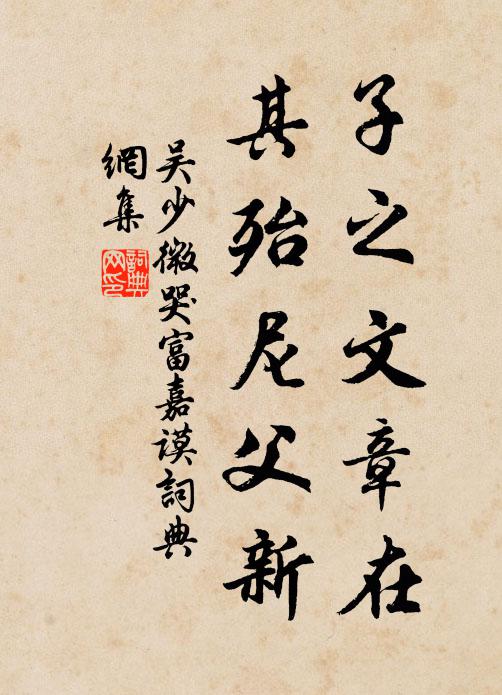 子之文章在
其殆尼父新
吴少微哭富嘉謨詞典
網集
詞典
网印